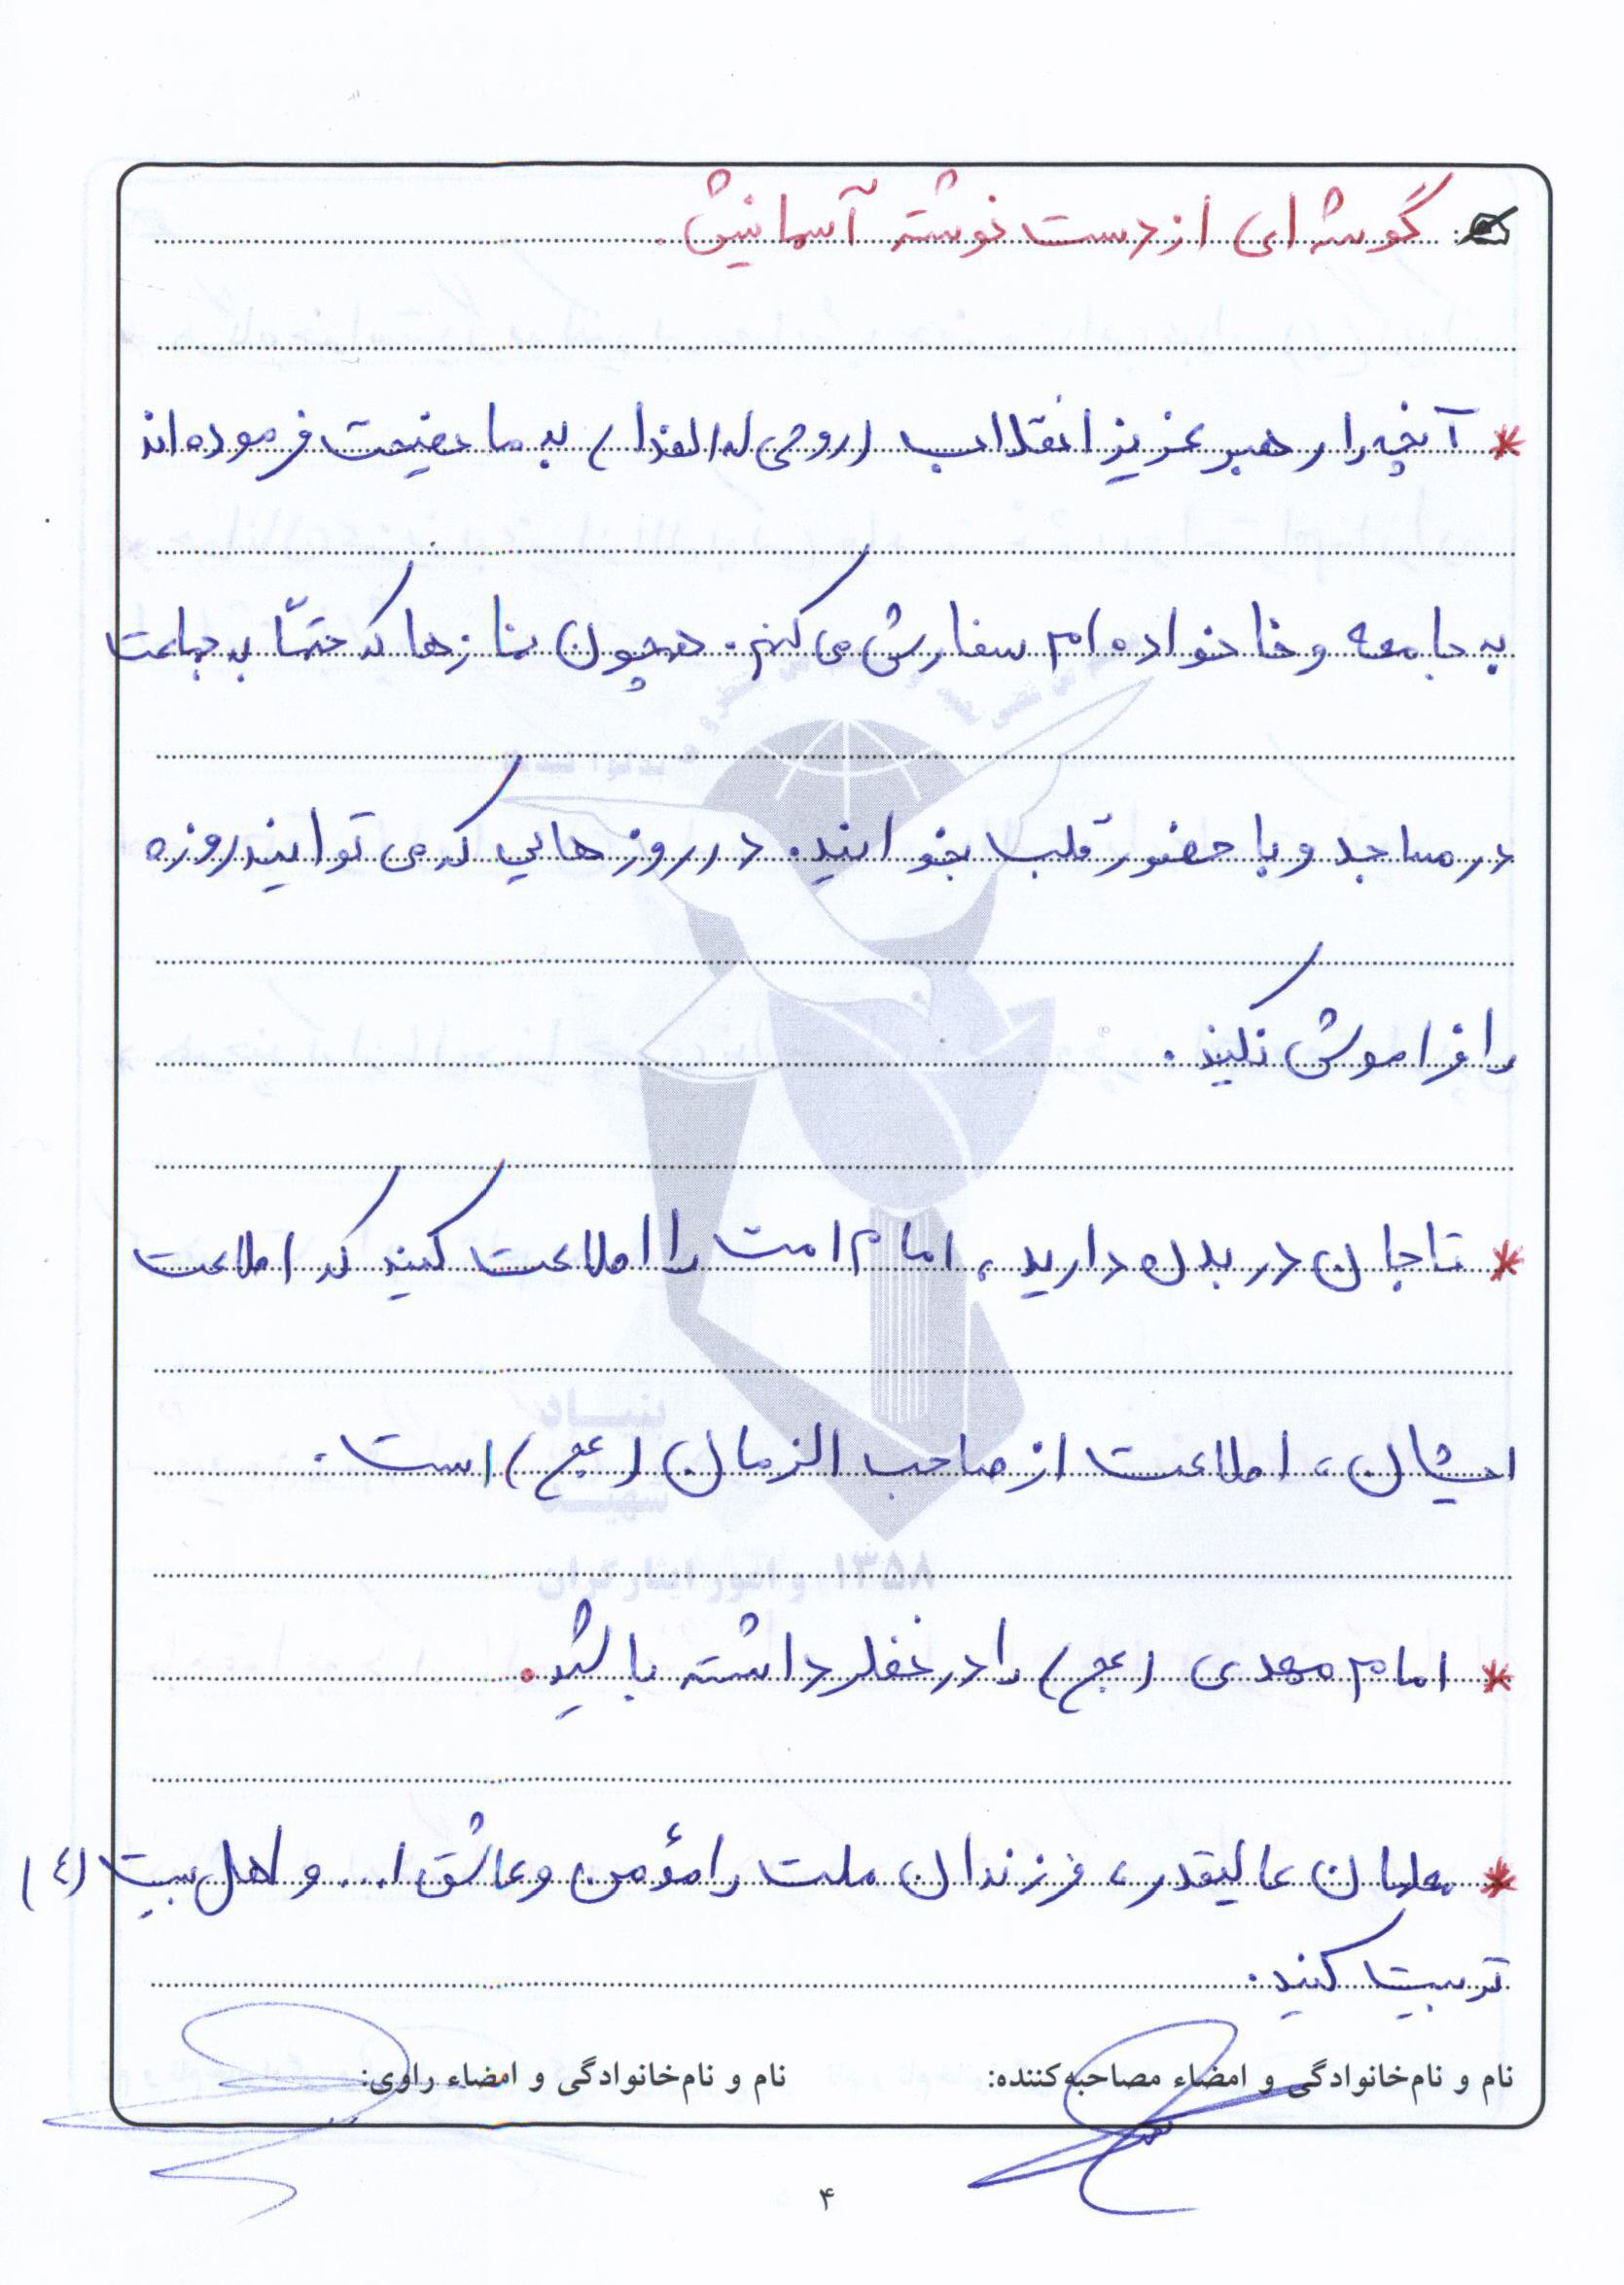 گوشه‌ای از دست نوشته آسمانیش.
* آنچه را رهبر عزیز انقلاب (روحی له الفدا) به ما نصیحت فرموده‌اند
به جامعه و خانواده‌ام سفارش می‌کنم. همچون نمازها که حتماً به جماعت
در مساجد و با حضور قلب بخوانید. در روزهایی که می‌توانید روزه
را فراموش نکنید.
* تا جان در بدن دارید، امام امت را اطاعت کنید که اطاعت
ایشان، اطاعت از صاحب الزمان (عج) است.
بنیاد
شهید
۱۳۵۸ و امور ایثارگران
* امام مهدی (عج) را در نظر داشته باشید.
* معلمان عالیقدر، فرزندان ملت را مؤمن و عاشق ا... و اهل بیت (ع)
تربیت کنید.
نام و نام‌خانوادگی و امضاء مصاحبه‌کننده: نام و نام‌خانوادگی و امضاء راوی:
۴